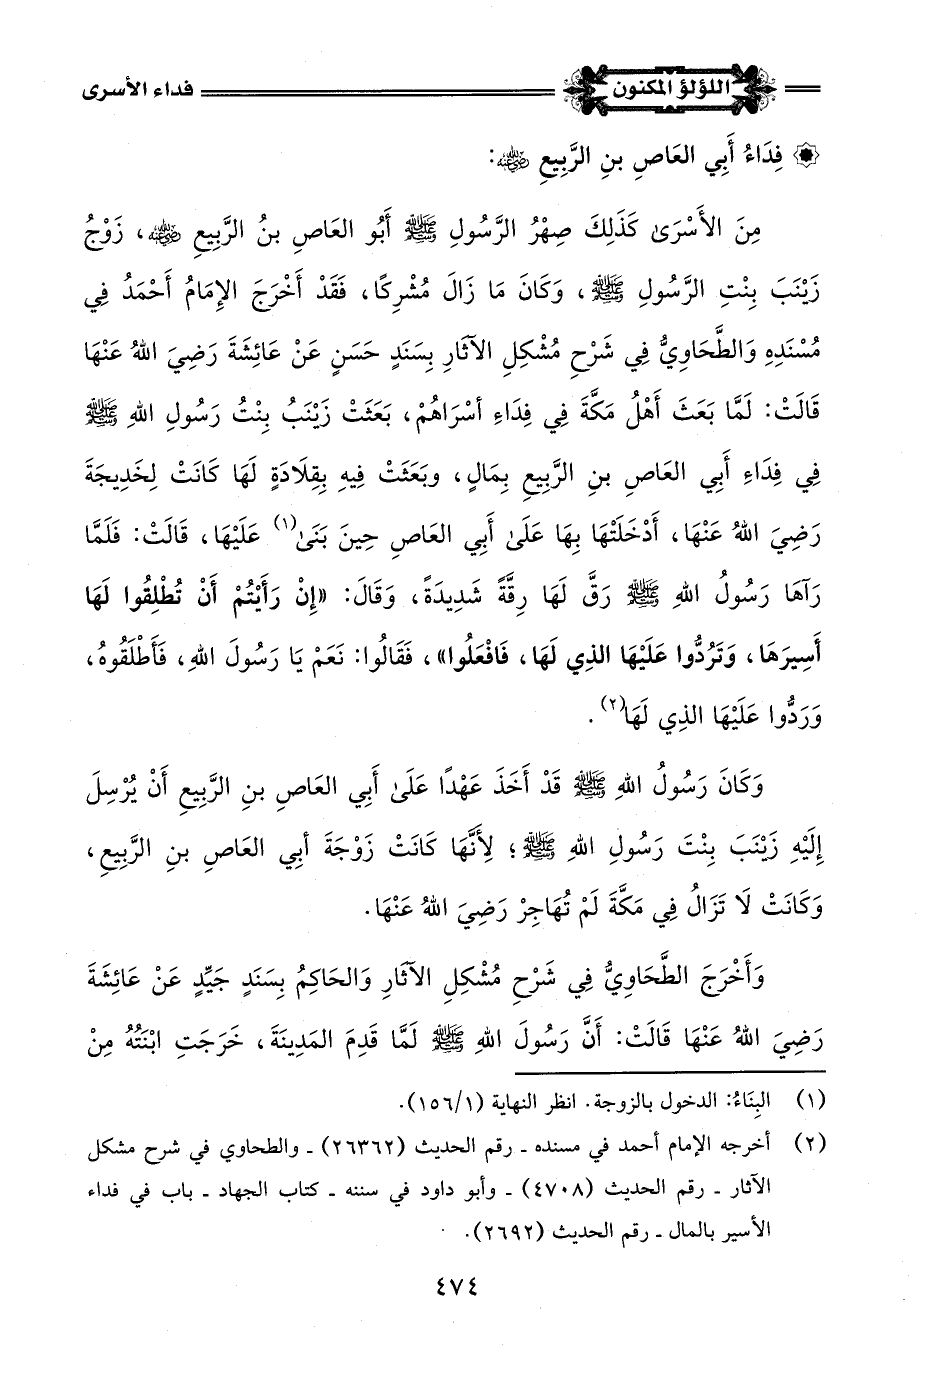 اللؤلؤ المكنون فداء الأسرى
فِدَاءُ أَبِي العَاصِ بنِ الرَّبِيعِ رضي الله عنه:
مِنَ الأَسْرَىٰ كَذَلِكَ صِهْرُ الرَّسُولِ ﷺ أَبُو العَاصِ بنُ الرَّبِيعِ رضي الله عنه، زَوْجُ
زَيْنَبَ بِنْتِ الرَّسُولِ ﷺ، وَكَانَ مَا زَالَ مُشْرِكًا، فَقَدْ أَخْرَجَ الإِمَامُ أَحْمَدُ فِي
مُسْنَدِهِ وَالطَّحَاوِيُّ فِي شَرْحِ مُشْكِلِ الآثَارِ بِسَنَدٍ حَسَنٍ عَنْ عَائِشَةَ رَضِيَ اللهُ عَنْهَا
قَالَتْ: لَمَّا بَعَثَ أَهْلُ مَكَّةَ فِي فِدَاءِ أَسْرَاهُمْ، بَعَثَتْ زَيْنَبُ بِنْتُ رَسُولِ اللهِ ﷺ
فِي فِدَاءِ أَبِي العَاصِ بنِ الرَّبِيعِ بِمَالٍ، وبَعَثَتْ فِيهِ بِقِلَادَةٍ لَهَا كَانَتْ لِخَدِيجَةَ
رَضِيَ اللهُ عَنْهَا، أَدْخَلَتْهَا بِهَا عَلَىٰ أَبِي العَاصِ حِينَ بَنَىٰ(١) عَلَيْهَا، قَالَتْ: فَلَمَّا
رَآهَا رَسُولُ اللهِ ﷺ رَقَّ لَهَا رِقَّةً شَدِيدَةً، وَقَالَ: «إِنْ رَأَيْتُمْ أَنْ تُطْلِقُوا لَهَا
أَسِيرَهَا، وَتَرُدُّوا عَلَيْهَا الذِي لَهَا، فَافْعَلُوا»، فَقَالُوا: نَعَمْ يَا رَسُولَ اللهِ، فَأَطْلَقُوهُ،
وَرَدُّوا عَلَيْهَا الذِي لَهَا(٢).
وَكَانَ رَسُولُ اللهِ ﷺ قَدْ أَخَذَ عَهْدًا عَلَىٰ أَبِي العَاصِ بنِ الرَّبِيعِ أَنْ يُرْسِلَ
إِلَيْهِ زَيْنَبَ بِنْتَ رَسُولِ اللهِ ﷺ؛ لِأَنَّهَا كَانَتْ زَوْجَةَ أَبِي العَاصِ بنِ الرَّبِيعِ،
وَكَانَتْ لَا تَزَالُ فِي مَكَّةَ لَمْ تُهَاجِرْ رَضِيَ اللهُ عَنْهَا.
وَأَخْرَجَ الطَّحَاوِيُّ فِي شَرْحِ مُشْكِلِ الآثَارِ وَالحَاكِمُ بِسَنَدٍ جَيِّدٍ عَنْ عَائِشَةَ
رَضِيَ اللهُ عَنْهَا قَالَتْ: أَنَّ رَسُولَ اللهِ ﷺ لَمَّا قَدِمَ المَدِينَةَ، خَرَجَتِ ابْنَتُهُ مِنْ
(١) البِنَاءُ: الدخول بالزوجة. انظر النهاية (١/١٥٦).
(٢) أخرجه الإمام أحمد في مسنده ـ رقم الحديث (٢٦٣٦٢) ـ والطحاوي في شرح مشكل
الآثار ـ رقم الحديث (٤٧٠٨) ـ وأبو داود في سننه ـ كتاب الجهاد ـ باب في فداء
الأسير بالمال ـ رقم الحديث (٢٦٩٢).
٤٧٤